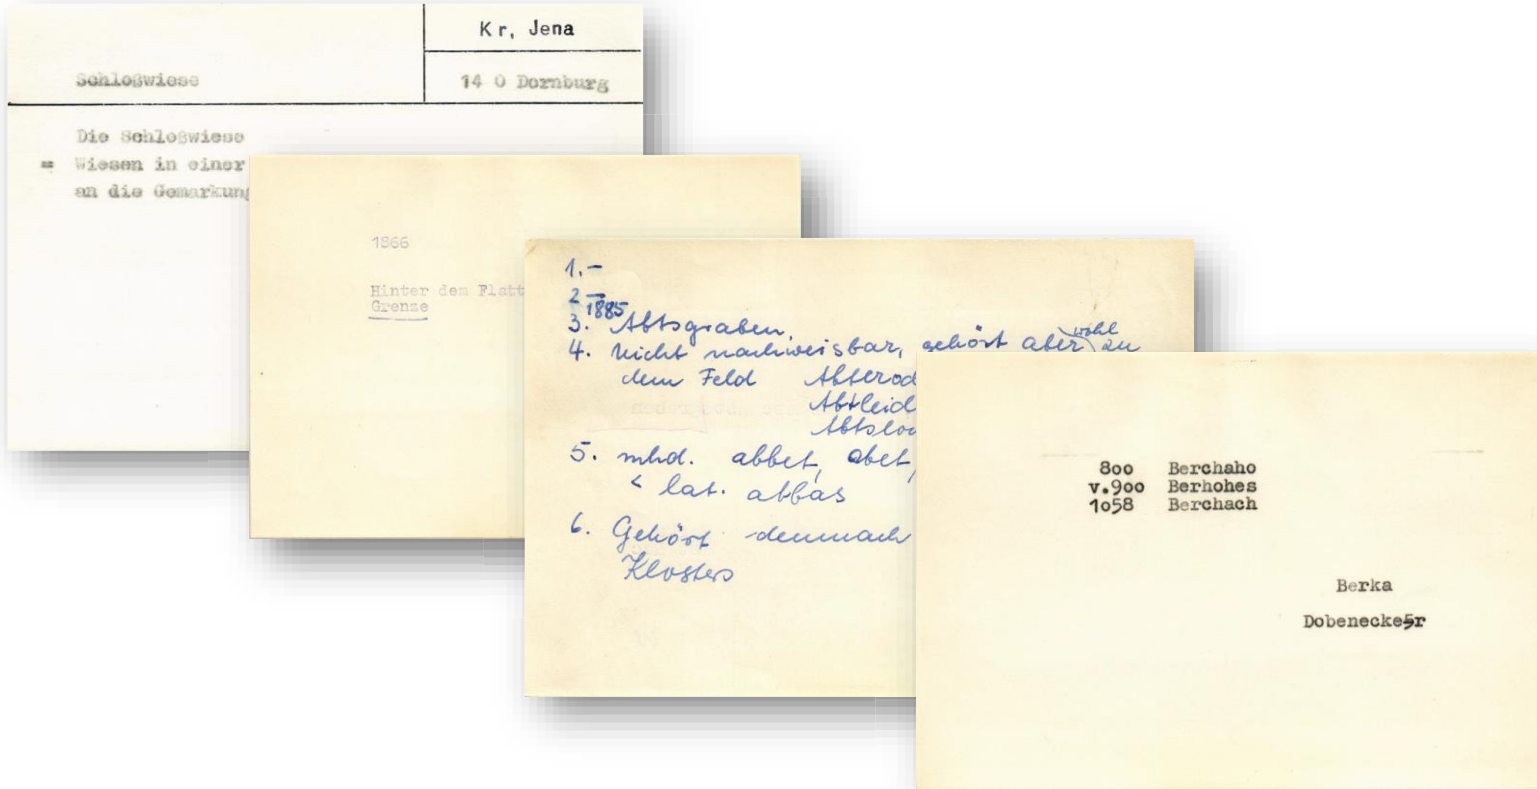 Kr. Jena
Schloßwiese
14 0 Dornburg
Die Schloßwiese
= Wiesen in einer
an die Gemarkung
1866
Hinter dem Flatt
Grenze
1. –
2 –
1885
3. Abtsgraben.
4. Nicht nachweisbar, gehört aber wohl zu
dem Feld Abterod
Abtleid
Abtslo
5. mhd. abbet, abet,
< lat. abbas
6. Gehört demnach
Klosters
800 Berchaho
v.900 Berhohes
1058 Berchach
Berka
Dobenecker